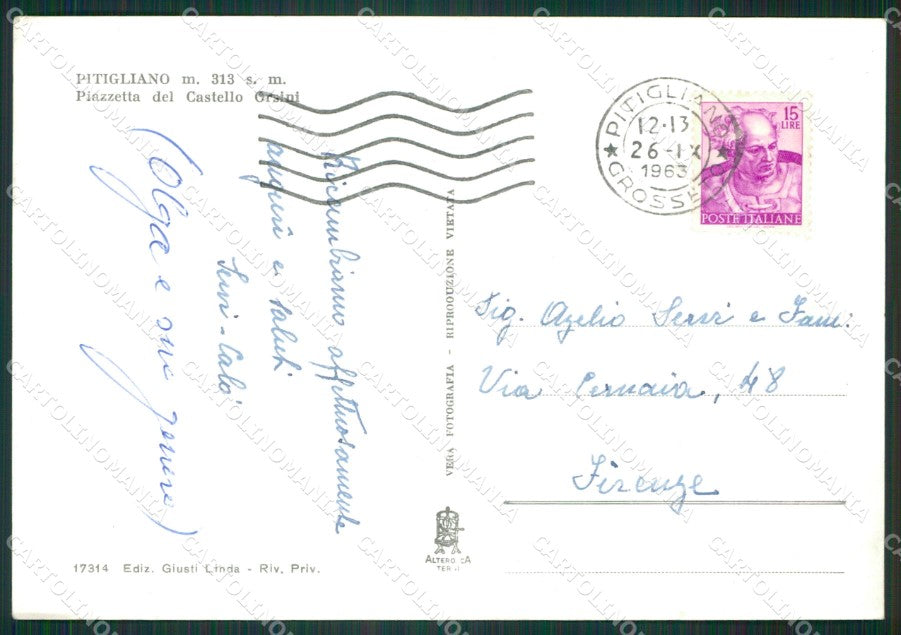 PITIGLIANO m. 313 s. m.
Piazzetta del Castello Orsini
PITIGLIANO
12-13
26-IX
1963
GROSSETO
15
LIRE
POSTE ITALIANE
Ricambiamo affettuosamente
auguri e saluti
Servi - Calò
(Olga e suo genero)
VERA FOTOGRAFIA - RIPRODUZIONE VIETATA
Sig. Azelio Servi e Fam:
Via Cernaia, 48
Firenze
ALTEROCCA
TERNI
17314 Ediz. Giusti Linda - Riv. Priv.
CARTOLINOMANIA